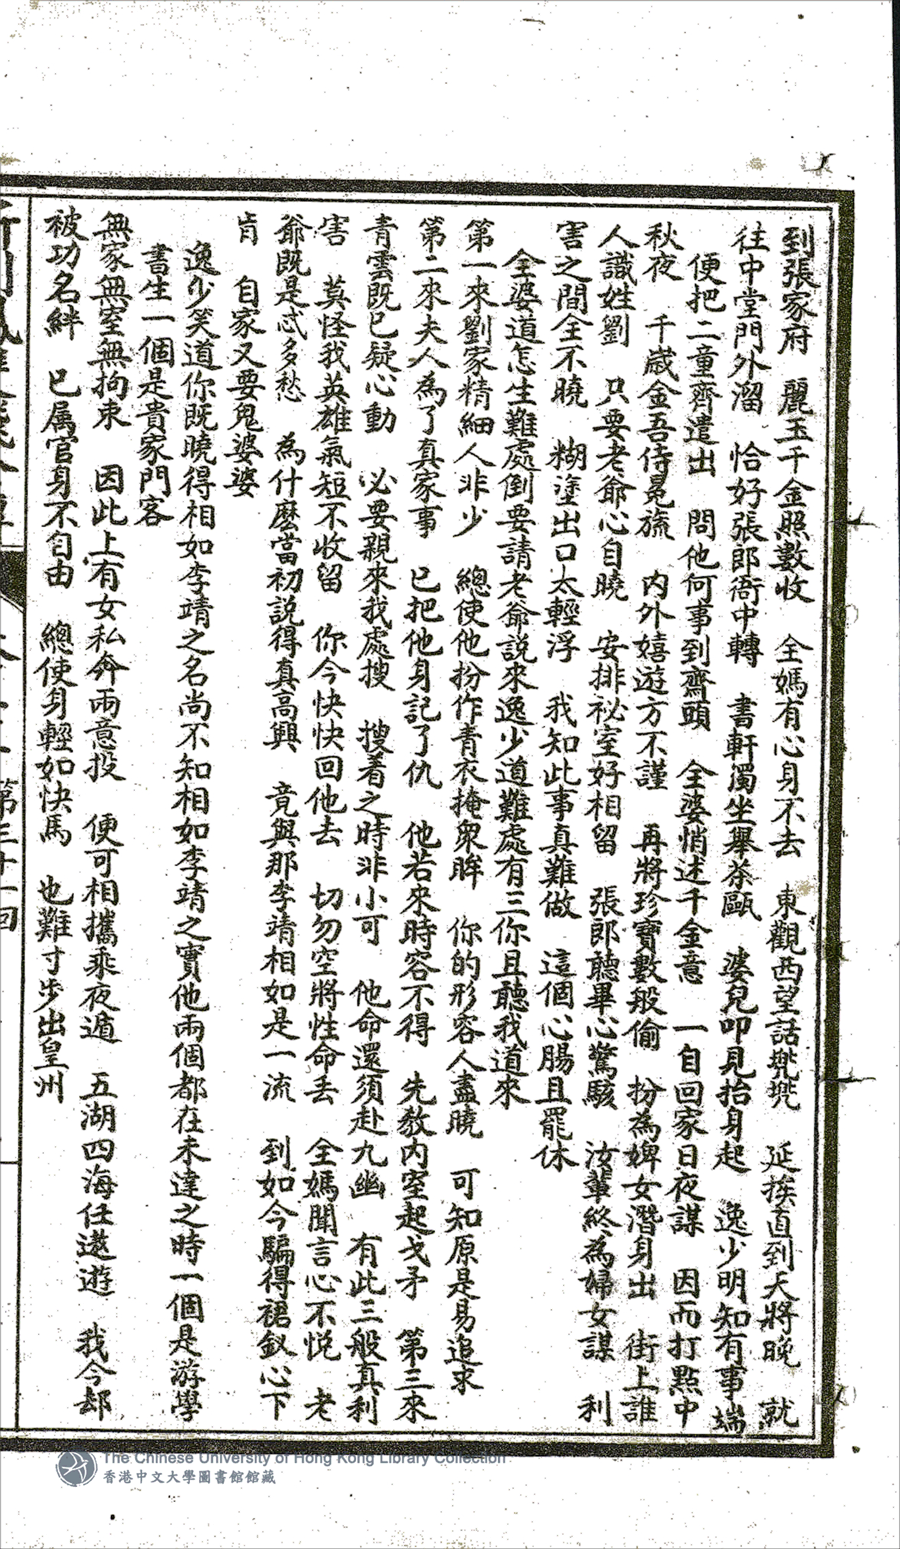 到張家府　麗玉千金照數收　全媽有心身不去　東觀西望話兠兠　延挨直到天將晚　就
往中堂門外溜　恰好張郎衙中轉　書軒獨坐舉茶甌　婆兒叩見抬身起　逸少明知有事端
便把二童齊遣出　問他何事到齋頭　全婆悄述千金意　一自回家日夜謀　因而打點中
秋夜　千歲金吾侍冕旒　內外嬉遊方不謹　再將珍寶數般偷　扮為婢女潛身出　街上誰
人識姓劉　只要老爺心自曉　安排祕室好相留　張郎聽畢心驚駭　汝輩終為婦女謀　利
害之間全不曉　糊塗出口太輕浮　我知此事真難做　這個心腸且罷休
全婆道怎生難處倒要請老爺説來逸少道難處有三你且聽我道來
第一來劉家精細人非少　總使他扮作青衣掩眾眸　你的形容人盡曉　可知原是易追求
第二來夫人為了真家事　已把他身記了仇　他若來時容不得　先教內室起戈矛　第三來
青雲既已疑心動　必要親來我處搜　搜着之時非小可　他命還須赴九幽　有此三般真利
害　莫怪我英雄氣短不收留　你今快快回他去　切勿空將性命丟　全媽聞言心不悦　老
爺既是忒多愁　為什麽當初説得真高興　竟與那李靖相如是一流　到如今騙得裙釵心下
肯　自家又要鬼婆婆
逸少笑道你既曉得相如李靖之名尚不知相如李靖之實他兩個都在未達之時一個是游學
書生一個是貴家門客
無家無室無拘束　因此上有女私奔兩意投　便可相攜乘夜遁　五湖四海任遨遊　我今却
被功名絆　已属官身不自由　總使身輕如快馬　也難寸步出皇州
第三十一回
The Chinese University of Hong Kong Library Collection
香港中文大學圖書館館藏